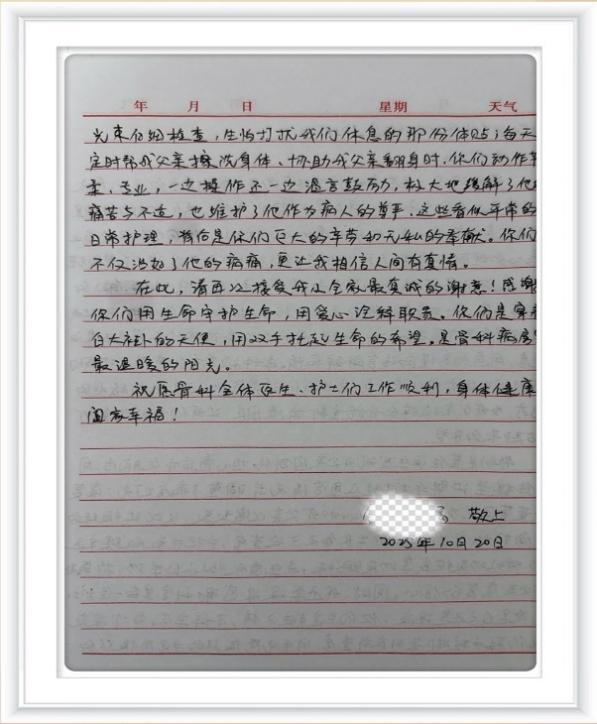 年 月 日 星期 天气
光束仔细检查，生怕打扰我们休息的那份体贴；每天
定时帮我父亲擦洗身体、协助我父亲翻身时，你们动作
柔、专业，一边操作还一边温言鼓励，极大地缓解了他
痛苦与不适，也维护了他作为病人的尊严。这些看似平常的
日常护理，背后是你们巨大的辛劳和无私的奉献。你们
不仅治好了他的病痛，更让我相信人间有真情。
在此，请再次接受我及全家最真诚的谢意！感谢
你们用生命守护生命，用爱心诠释职责。你们是穿着
白大褂的天使，用双手托起生命的希望。是骨科病房
最温暖的阳光。
祝愿骨科全体医生、护士们工作顺利，身体健康
阖家幸福！
敬上
2025年10月20日